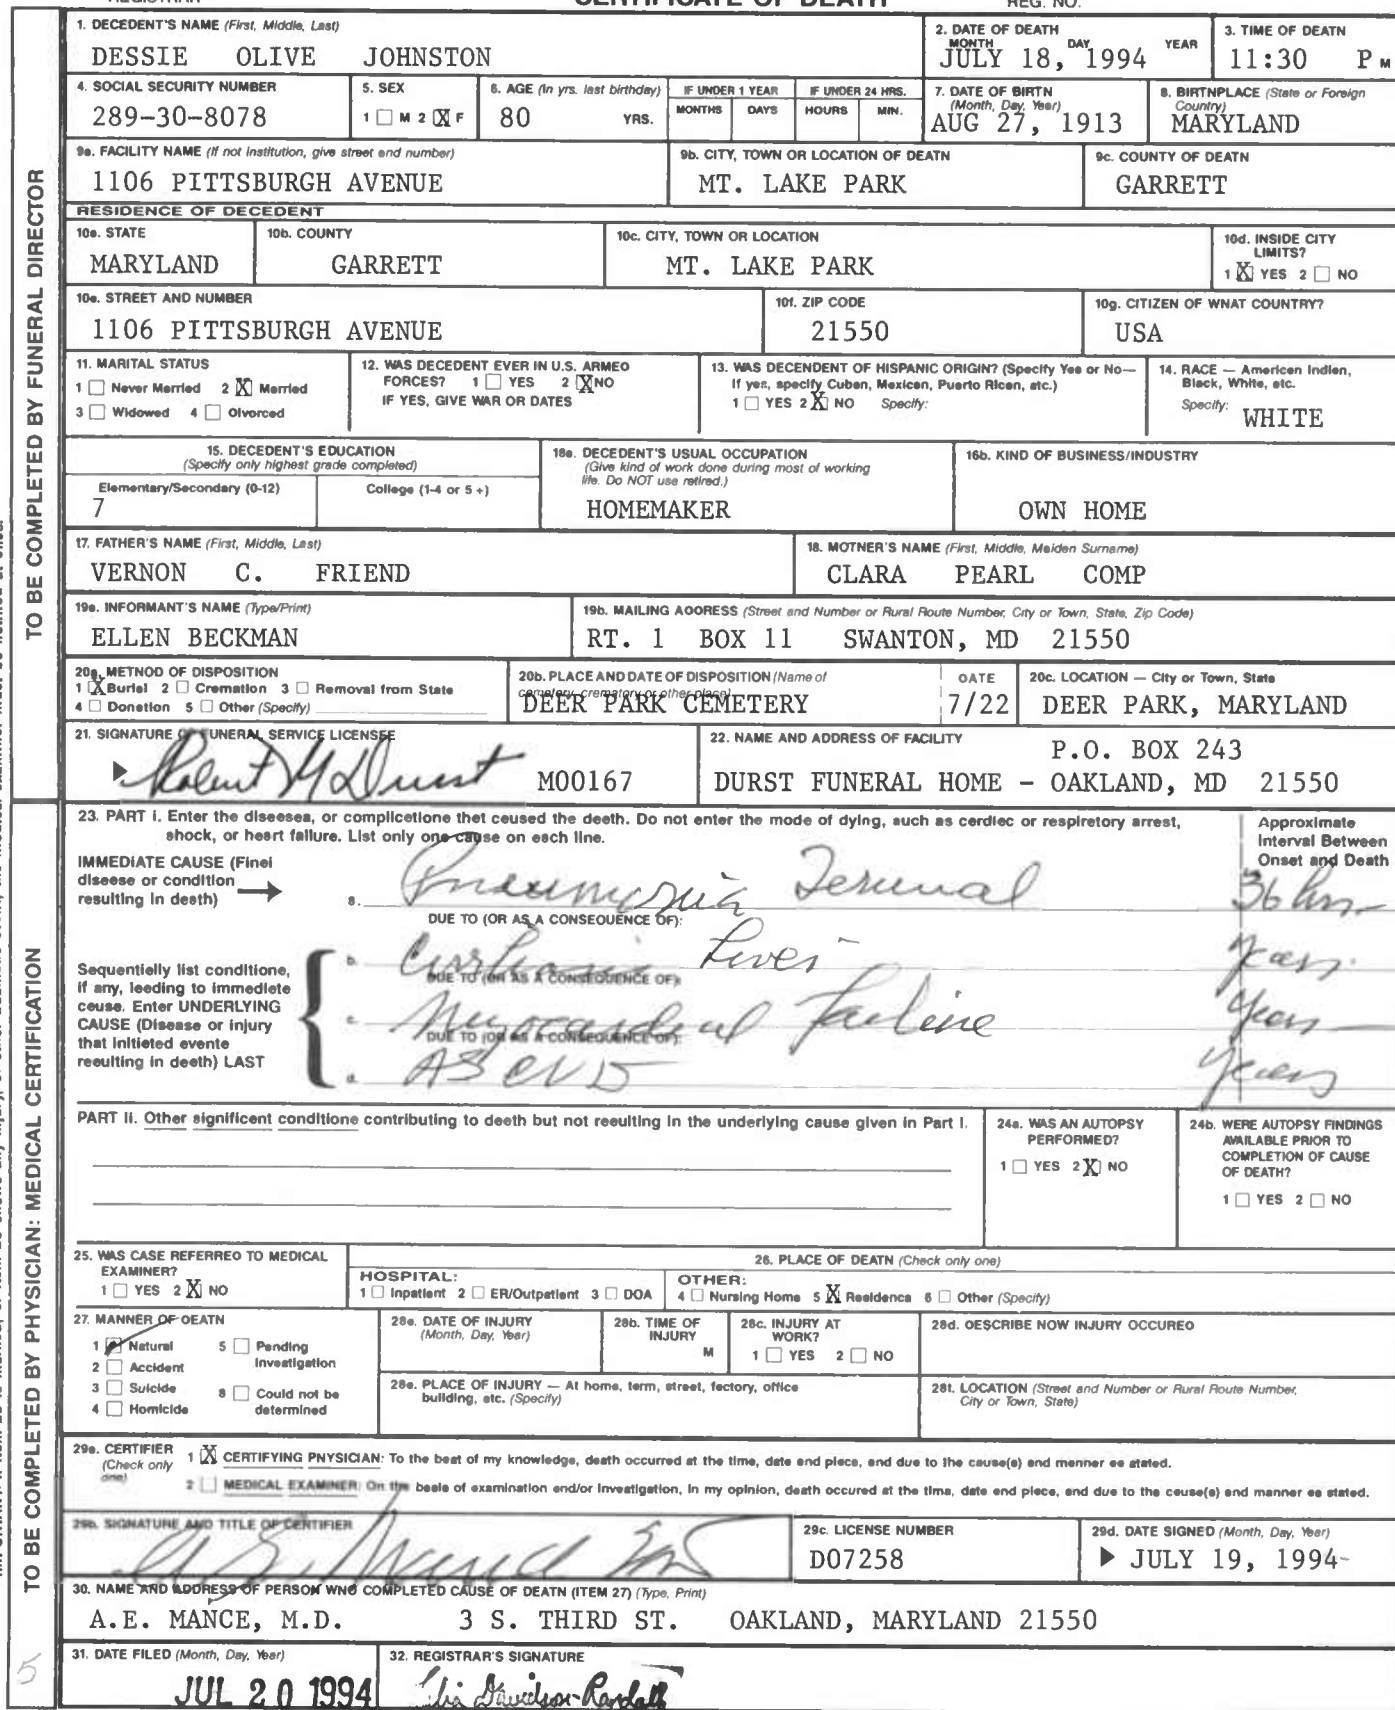 CERTIFICATE OF DEATH
REG. NO.
1. DECEDENT'S NAME (First, Middle, Last)
DESSIE OLIVE JOHNSTON
2. DATE OF DEATH
MONTH DAY YEAR
JULY 18, 1994
3. TIME OF DEATH
11:30 P M
4. SOCIAL SECURITY NUMBER
289-30-8078
5. SEX
1 ☐ M 2 ☒ F
6. AGE (In yrs. last birthday)
80 YRS.
IF UNDER 1 YEAR
MONTHS DAYS
IF UNDER 24 HRS.
HOURS MIN.
7. DATE OF BIRTH
(Month, Day, Year)
AUG 27, 1913
8. BIRTHPLACE (State or Foreign
Country)
MARYLAND
9a. FACILITY NAME (If not institution, give street and number)
1106 PITTSBURGH AVENUE
9b. CITY, TOWN OR LOCATION OF DEATH
MT. LAKE PARK
9c. COUNTY OF DEATH
GARRETT
RESIDENCE OF DECEDENT
10a. STATE
MARYLAND
10b. COUNTY
GARRETT
10c. CITY, TOWN OR LOCATION
MT. LAKE PARK
10d. INSIDE CITY
LIMITS?
1 ☒ YES 2 ☐ NO
10e. STREET AND NUMBER
1106 PITTSBURGH AVENUE
10f. ZIP CODE
21550
10g. CITIZEN OF WHAT COUNTRY?
USA
11. MARITAL STATUS
1 ☐ Never Married 2 ☒ Married
3 ☐ Widowed 4 ☐ Divorced
12. WAS DECEDENT EVER IN U.S. ARMED
FORCES? 1 ☐ YES 2 ☒ NO
IF YES, GIVE WAR OR DATES
13. WAS DECENDENT OF HISPANIC ORIGIN? (Specify Yes or No—
If yes, specify Cuban, Mexican, Puerto Rican, etc.)
1 ☐ YES 2 ☒ NO Specify:
14. RACE — American Indian,
Black, White, etc.
Specify: WHITE
15. DECEDENT'S EDUCATION
(Specify only highest grade completed)
Elementary/Secondary (0-12) College (1-4 or 5 +)
7
16a. DECEDENT'S USUAL OCCUPATION
(Give kind of work done during most of working
life. Do NOT use retired.)
HOMEMAKER
16b. KIND OF BUSINESS/INDUSTRY
OWN HOME
17. FATHER'S NAME (First, Middle, Last)
VERNON C. FRIEND
18. MOTHER'S NAME (First, Middle, Maiden Surname)
CLARA PEARL COMP
19a. INFORMANT'S NAME (Type/Print)
ELLEN BECKMAN
19b. MAILING ADDRESS (Street and Number or Rural Route Number, City or Town, State, Zip Code)
RT. 1 BOX 11 SWANTON, MD 21550
20a. METHOD OF DISPOSITION
1 ☒ Burial 2 ☐ Cremation 3 ☐ Removal from State
4 ☐ Donation 5 ☐ Other (Specify)
20b. PLACE AND DATE OF DISPOSITION (Name of
cemetery, crematory or other place)
DEER PARK CEMETERY
DATE
7/22
20c. LOCATION — City or Town, State
DEER PARK, MARYLAND
21. SIGNATURE OF FUNERAL SERVICE LICENSEE
Robert M Durst M00167
22. NAME AND ADDRESS OF FACILITY
P.O. BOX 243
DURST FUNERAL HOME - OAKLAND, MD 21550
TO BE COMPLETED BY FUNERAL DIRECTOR
23. PART I. Enter the diseases, or complications that caused the death. Do not enter the mode of dying, such as cardiac or respiratory arrest,
shock, or heart failure. List only one cause on each line.
Approximate
Interval Between
Onset and Death
IMMEDIATE CAUSE (Final
disease or condition
resulting in death)
a. Pneumonia Terminal 36 hrs
DUE TO (OR AS A CONSEQUENCE OF):
Sequentially list conditions,
if any, leading to immediate
cause. Enter UNDERLYING
CAUSE (Disease or injury
that initiated events
resulting in death) LAST
b. Cirrhosis Liver years
DUE TO (OR AS A CONSEQUENCE OF):
c. Myocardial Failure years
DUE TO (OR AS A CONSEQUENCE OF):
d. ASCVD years
PART II. Other significant conditions contributing to death but not resulting in the underlying cause given in Part I.
24a. WAS AN AUTOPSY
PERFORMED?
1 ☐ YES 2 ☒ NO
24b. WERE AUTOPSY FINDINGS
AVAILABLE PRIOR TO
COMPLETION OF CAUSE
OF DEATH?
1 ☐ YES 2 ☐ NO
25. WAS CASE REFERRED TO MEDICAL
EXAMINER?
1 ☐ YES 2 ☒ NO
26. PLACE OF DEATH (Check only one)
HOSPITAL:
1 ☐ Inpatient 2 ☐ ER/Outpatient 3 ☐ DOA
OTHER:
4 ☐ Nursing Home 5 ☒ Residence 6 ☐ Other (Specify)
27. MANNER OF DEATH
1 ☒ Natural 5 ☐ Pending
Investigation
2 ☐ Accident
3 ☐ Suicide 8 ☐ Could not be
determined
4 ☐ Homicide
28a. DATE OF INJURY
(Month, Day, Year)
28b. TIME OF
INJURY
M
28c. INJURY AT
WORK?
1 ☐ YES 2 ☐ NO
28d. DESCRIBE HOW INJURY OCCURED
28e. PLACE OF INJURY — At home, term, street, factory, office
building, etc. (Specify)
28f. LOCATION (Street and Number or Rural Route Number,
City or Town, State)
29a. CERTIFIER
(Check only
one)
1 ☒ CERTIFYING PHYSICIAN: To the best of my knowledge, death occurred at the time, date and place, and due to the cause(s) and manner as stated.
2 ☐ MEDICAL EXAMINER: On the basis of examination and/or investigation, in my opinion, death occured at the time, date and place, and due to the cause(s) and manner as stated.
29b. SIGNATURE AND TITLE OF CERTIFIER
29c. LICENSE NUMBER
D07258
29d. DATE SIGNED (Month, Day, Year)
JULY 19, 1994
30. NAME AND ADDRESS OF PERSON WHO COMPLETED CAUSE OF DEATH (ITEM 27) (Type, Print)
A.E. MANCE, M.D. 3 S. THIRD ST. OAKLAND, MARYLAND 21550
31. DATE FILED (Month, Day, Year)
JUL 20 1994
32. REGISTRAR'S SIGNATURE
Davidson-Randall
TO BE COMPLETED BY PHYSICIAN: MEDICAL CERTIFICATION
5